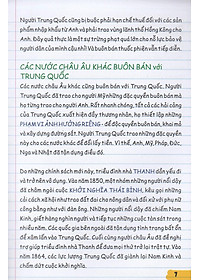 Người Trung Quốc cũng bị buộc phải hạn chế thuế đối với các sản
phẩm nhập khẩu từ Anh và phải trao vùng lãnh thổ Hồng Kông cho
Anh. Đây quả thực là một sự trừng phạt quá lớn cho nỗ lực bảo vệ
người dân của mình! Và buôn bán thuốc phiện vẫn tiếp diễn.
CÁC NƯỚC CHÂU ÂU KHÁC BUÔN BÁN với
TRUNG QUỐC
Các nước châu Âu khác cũng buôn bán với Trung Quốc. Người
Trung Quốc đã trao cho người Mỹ những đặc quyền buôn bán
mà họ trao cho người Anh. Rất nhanh chóng, tất cả các hải cảng
của Trung Quốc xuất hiện đầy thương nhân, họ thiết lập những
PHẠM VI ẢNH HƯỞNG RIÊNG - đặc quyền buôn bán, khai mỏ
và xây dựng đường sắt. Người Trung Quốc trao những đặc quyền
này cho các nước khác để đổi lấy tiền. Vì thế, Anh, Mỹ, Pháp, Đức,
Nga và Nhật đã tận dụng điều đó.
Do những chính sách mới này, triều đình nhà THANH dần yếu đi
và trở nên vô dụng. Vào năm 1850, một nhóm những người nổi dậy
đã châm ngòi cuộc KHỞI NGHĨA THÁI BÌNH, kêu gọi những
cải cách xã hội như trao đất đai cho nông dân và đối xử với phụ nữ
công bằng như với đàn ông. Những người nổi dậy đã chiếm Nam
Kinh, giết hàng nghìn người và tiếp tục những cuộc tàn sát trong
nhiều năm. Các quốc gia bên ngoài đã tận dụng tình trạng bất ổn
để xâm lấn vào Trung Quốc. Cuối cùng người châu Âu đã đề nghị
trợ giúp triều đình nhà Thanh để đưa mọi thứ trở lại trật tự. Vào
năm 1864, các lực lượng Trung Quốc đã giành lại Nam Kinh và
chấm dứt cuộc nổi dậy.
7